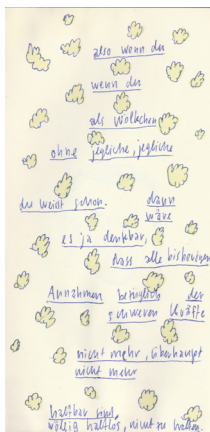 also wenn du
wenn du
als Wölkchen
ohne jegliche, jegliche
du weißt schon. dann
wäre
es ja denkbar,
dass alle bisherigen
Annahmen bezüglich der
schweren Kräfte
nicht mehr, überhaupt
nicht mehr
haltbar sind,
völlig haltlos, nicht zu halten.